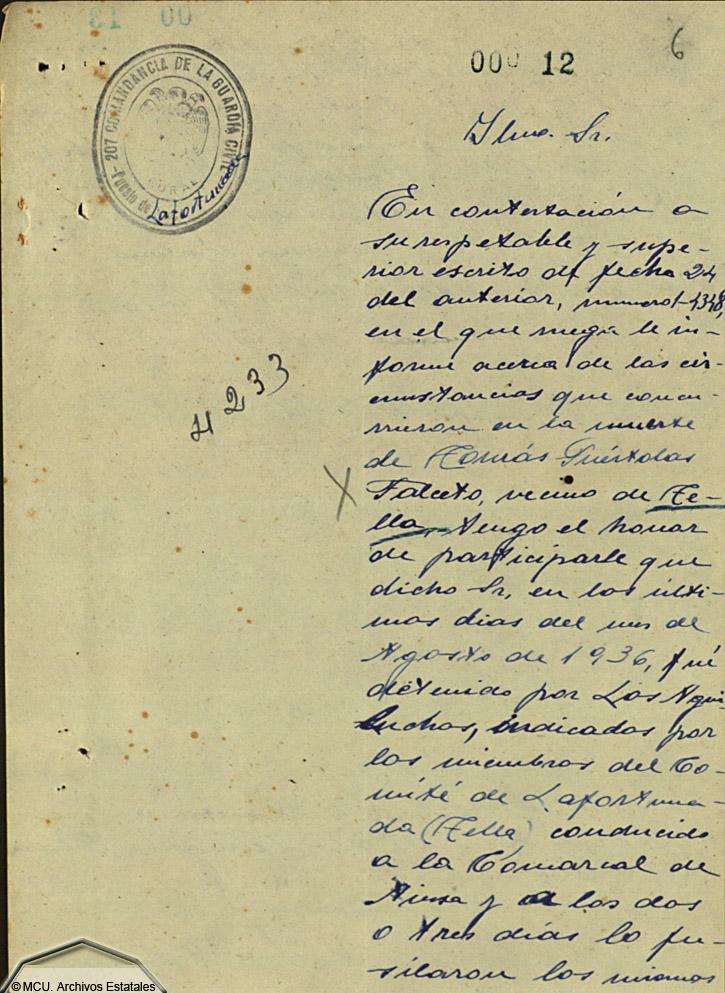 000 12
6
207 COMANDANCIA DE LA GUARDIA CIVIL
RURAL
- Puesto de Lafortunada
Ilmo. Sr.
En contestación a
su respetable y supe-
rior escrito de fecha 24
del anterior, numero
en el que me le in-
forme acerca de las cir-
cunstancias que concu-
rrieron en la muerte
de Tomás Puértolas
Falceto, vecino de Te-
lla, tengo el honor
de participarle que
dicho Sr, en los últi-
mos dias del mes de
Agosto de 1936, fué
detenido por Los Agui-
luchos, indicados por
los miembros del Co-
mité de Lafortuna-
da (Tella) conducido
a la Comarcal de
Ainsa y a los dos
o tres días lo fu-
silaron los mismos
4233
X
© MCU. Archivos Estatales